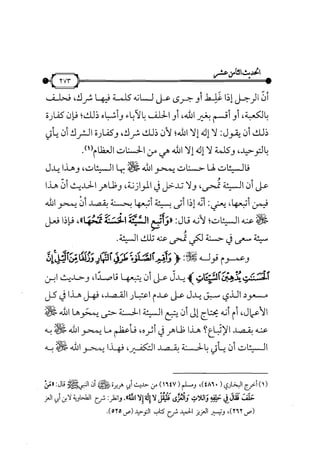 الحديث الثامن عشر
٢٧٣
أنَّ الرجل إذا غلط أو جرى على لسانه كلمة فيها شرك، فحلف
بالكعبة، أو أقسم بغير الله، أو الحلف بالآباء وأشباه ذلك؛ فإن كفارة
ذلك أن يقول: لا إله إلا الله؛ لأن ذلك شرك، وكفارة الشرك أن يأتي
بالتوحيد، وكلمة لا إله إلا الله هي من الحسنات العظام(١).
فالسيئات لها حسنات يمحو الله ﷻ بها السيئات، وهذا يدل
على أن السيئة تُمحى، ولا تدخل في الموازنة، وظاهر الحديث أنَّ هذا
فيمن أتبعها، يعني: أنَّه إذا أتى بسيئة أتبعها بحسنة بقصد أن يمحو الله
ﷻ عنه السيئات؛ لأنه قال: «وَأَتْبِعِ السَّيِّئَةَ الْحَسَنَةَ تَمْحُهَا»، فإذا فعل
سيئة سعى في حسنة لكي تُمحى عنه تلك السيئة.
وعموم قوله ﷻ: ﴿وَأَقِمِ الصَّلَاةَ طَرَفَيِ النَّهَارِ وَزُلَفًا مِنَ اللَّيْلِ إِنَّ
الْحَسَنَاتِ يُذْهِبْنَ السَّيِّئَاتِ﴾ يدلّ على أن يتبعها قاصدًا، وحديث ابن
مسعود الذي سبق يدل على عدم اعتبار القصد، فهل هذا في كل
الأعمال، أم أنه يحتاج إلى أن يتبع السيئة الحسنة حتى يمحوها الله ﷻ
عنه بقصد الإتباع؟ هذا ظاهر في أثره، فأعظم ما يمحو الله ﷻ به
السيئات أن يأتي بالحسنة بقصد التكفير، فهذا يمحو الله ﷻ به
(١) أخرج البخاري (٤٨٦٠)، ومسلم (١٦٤٧) من حديث أبي هريرة ﵁ أن النبي ﷺ قال: «مَنْ
حَلَفَ فَقَالَ فِي حَلِفِهِ وَاللَّاتِ وَالْعُزَّى فَلْيَقُلْ لَا إِلَهَ إِلَّا اللهُ». وانظر: شرح الطحاوية لابن أبي العز
(ص٢٦٢)، وتيسير العزيز الحميد شرح كتاب التوحيد (ص٥٢٥).